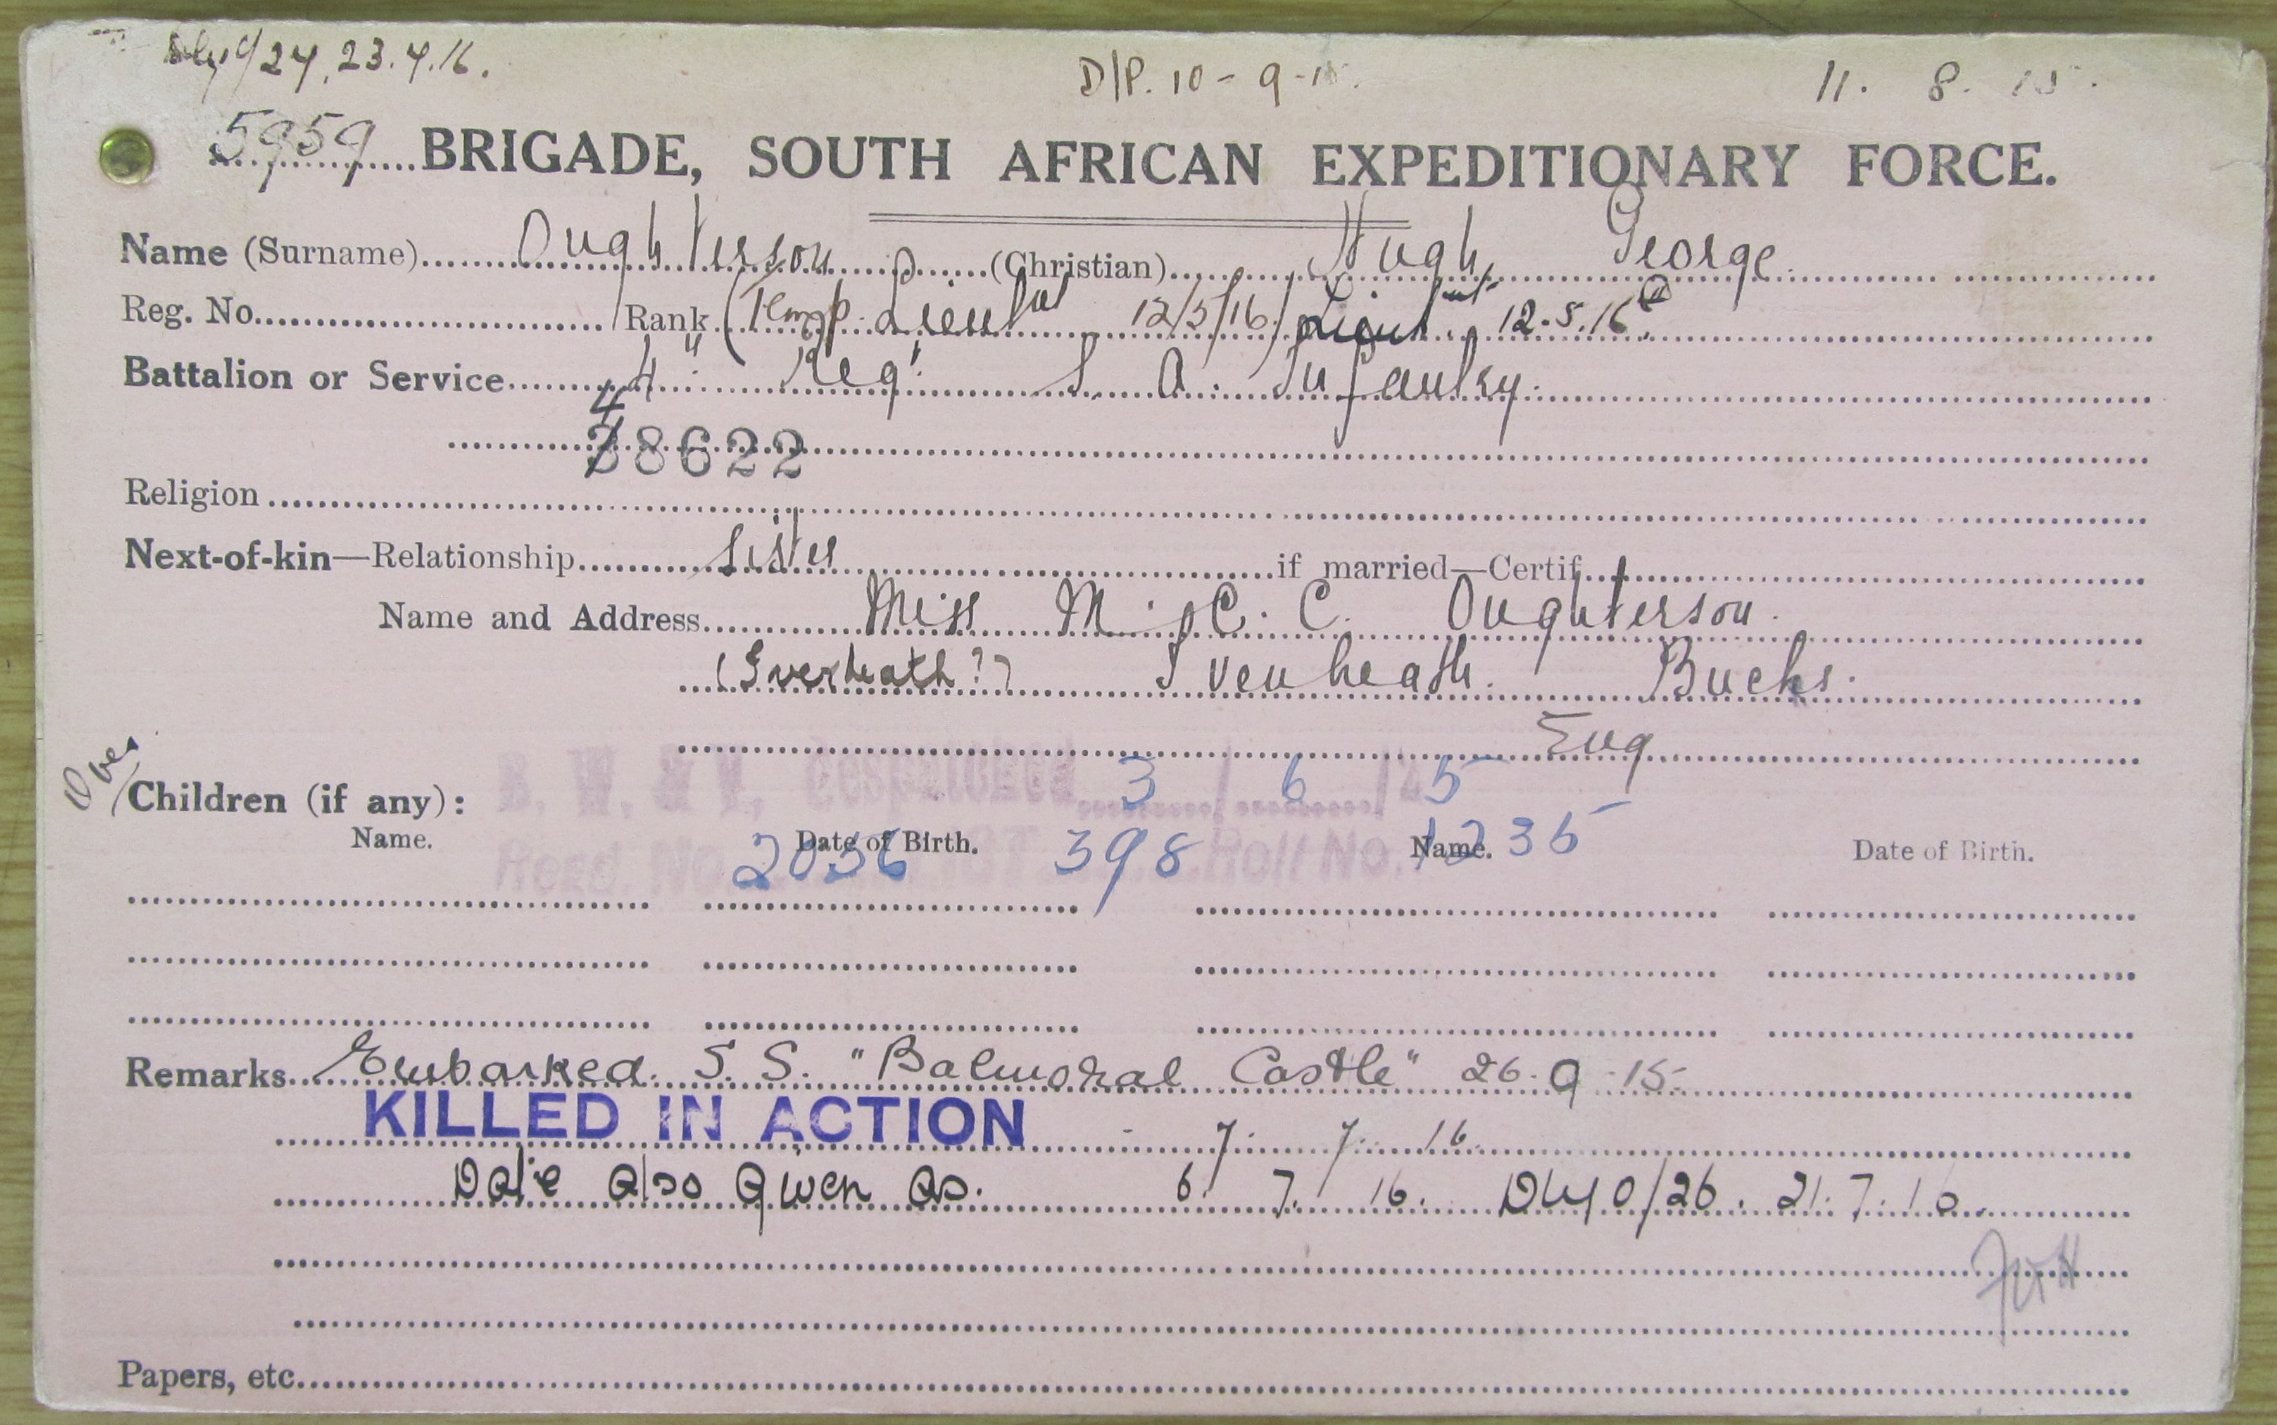 24. 23.4.16. D/P. 10-9-15. 11. 8. 15.
5959 BRIGADE, SOUTH AFRICAN EXPEDITIONARY FORCE.
Name (Surname) Oughterson (Christian) Hugh George
Reg. No. Rank (Temp. Lieut 12/5/16) Lieut. 12.5.16
Battalion or Service 4" Regt S. A. Infantry.
48622
Religion
Next-of-kin—Relationship Sister if married—Certif.
Name and Address Miss M. C. C. Oughterson.
(Iverheath?) Ivenheath. Bucks.
Eng
Over
Children (if any): B. W. & V. Despatched 3/6/25
Name. Date of Birth. Name. Date of Birth.
Regd. No. 2056 398 Roll No. 1235
Remarks Embarked. S. S. "Balmoral Castle" 26.9.15
KILLED IN ACTION - 7. 7. 16.
Date also given as. 6. 7. 16. 0/26. 21.7.16.
Papers, etc.